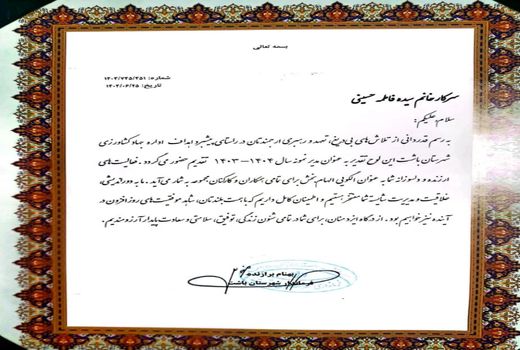 بسمه تعالی
شماره: ۱۴۰۳/۷۳۵/۳۵۱
تاریخ: ۱۴۰۳/۰۶/۲۵
سرکار خانم سیده فاطمه حسینی
سلام علیکم؛
به رسم قدردانی از تلاش‌های بی‌دریغ، تعهد و رهبری ارجمندتان در راستای پیشبرد اهداف اداره جهاد کشاورزی
شهرستان باشت این لوح تقدیر به عنوان مدیر نمونه سال ۱۴۰۴ - ۱۴۰۳ تقدیم حضور می‌گردد. فعالیت‌های
ارزنده و دلسوزانه شما به عنوان الگویی الهام‌بخش برای تمامی همکاران و کارکنان مجموعه به شمار می‌آید. ما به دوراندیشی،
خلاقیت و مدیریت شایسته شما مفتخر هستیم و اطمینان کامل داریم که با همت بلندتان، شاهد موفقیت‌های روزافزون در
آینده نیز خواهیم بود. از درگاه ایزد منان، برای شما در تمامی شئون زندگی، توفیق، سلامتی و سعادت پایدار آرزومندیم.
بهنام برازنده
فرماندار شهرستان باشت